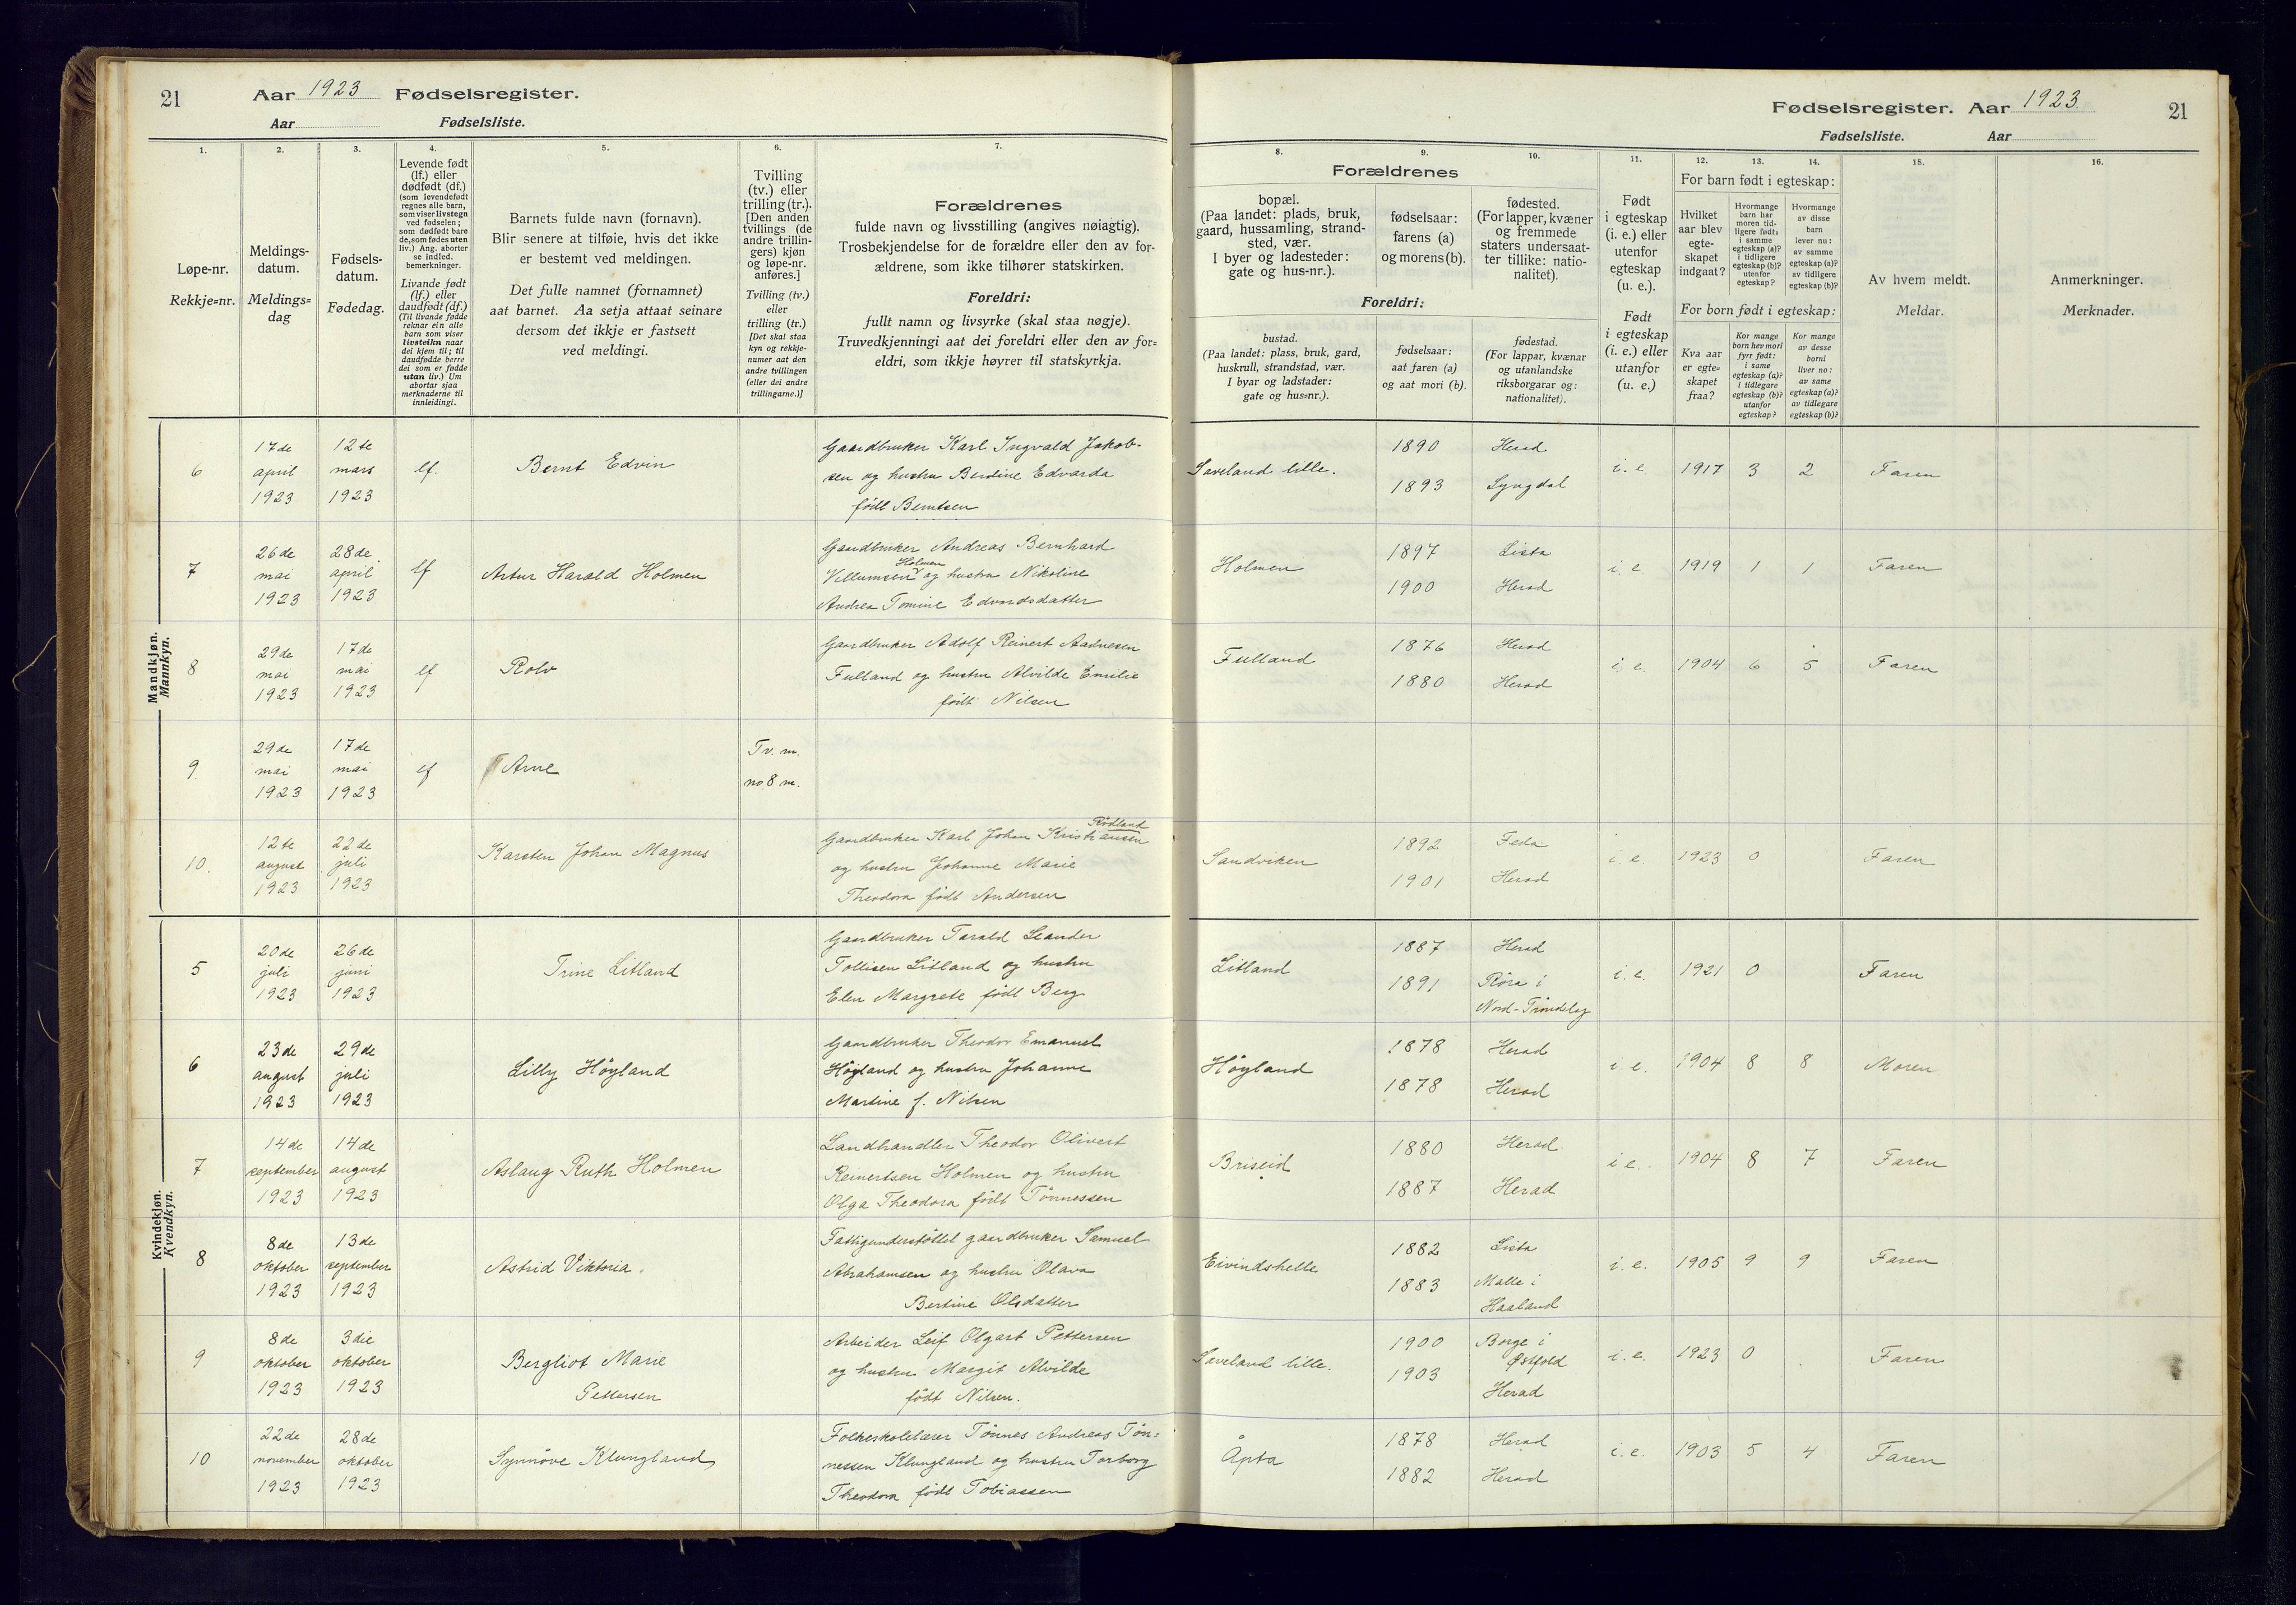 21
Aar 1923 Fødselsregister.
Aar Fødselsliste.
Fødselsregister. Aar 1923.
21
Fødselsliste. Aar
1.
2.
3.
4.
5.
6.
7.
8.
9.
10.
11.
12.
13.
14.
15.
16.
Løpe-nr.
Rekkje=nr.
Meldings-
datum.
Meldings=
dag
Fødsels-
datum.
Fødedag.
Levende født
(lf.) eller
dødfødt (df.)
(som levendefødt
regnes alle barn,
som viser livstegn
ved fødselen;
som dødfødt bare
de, som fødes uten
liv.) Ang. aborter
se indled.
bemerkninger.
Livande født
(lf.) eller
daudfødt (df.)
(Til livande fødde
reknar ein alle
barn som viser
livsteikn naar
dei kjem til; til
daudfødde berre
dei som er fødde
utan liv.) Um
abortar sjaa
merknaderne til
innleidingi.
Barnets fulde navn (fornavn).
Blir senere at tilføie, hvis det ikke
er bestemt ved meldingen.
Det fulle namnet (fornamnet)
aat barnet. Aa setja attaat seinare
dersom det ikkje er fastsett
ved meldingi.
Tvilling
(tv.) eller
trilling (tr.).
[Den anden
tvillings (de
andre trillin-
gers) kjøn
og løpe-nr.
anføres.]
Tvilling (tv.)
eller
trilling (tr.)
[Det skal staa
kyn og rekkje-
numer aat den
andre tvillingen
(eller dei andre
trillingarne.)]
Forældrenes
fulde navn og livsstilling (angives nøiagtig).
Trosbekjendelse for de forældre eller den av for-
ældrene, som ikke tilhører statskirken.
Foreldri:
fullt namn og livsyrke (skal staa nøgje).
Truvedkjenningi aat dei foreldri eller den av for=
eldri, som ikkje høyrer til statskyrkja.
Forældrenes
bopæl.
(Paa landet: plads, bruk,
gaard, hussamling, strand-
sted, vær.
I byer og ladesteder:
gate og hus-nr.).
fødselsaar:
farens (a)
og morens (b).
fødested.
(For lapper, kvæner
og fremmede
staters undersaat-
ter tillike: natio-
nalitet).
Foreldri:
bustad.
(Paa landet: plass, bruk, gard,
huskrull, strandstad, vær.
I byar og ladstader:
gate og hus=nr.).
fødselsaar:
aat faren (a)
og aat mori (b).
fødestad.
(For lappar, kvænar
og utanlandske
riksborgarar og:
nationalitet).
Født
i egteskap
(i. e.) eller
utenfor
egteskap
(u. e.).
Født
i egteskap
(i. e.) eller
utanfor
(u. e.)
For barn født i egteskap:
Hvilket
aar blev
egte-
skapet
indgaat?
Hvormange
barn har
moren tid-
ligere født:
i samme
egteskap (a)?
i tidligere
egteskap (b)?
utenfor
egteskap?
Hvormange
av disse
barn
lever nu:
av samme
egteskap (a)?
av tidligere
egteskap (b)?
For born født i egteskap:
Kva aar
er egte=
skapet
fraa?
Kor mange
born hev mori
fyrr født:
i same
egteskap (a)?
i tidlegare
egteskap (b)?
utanfor
egteskap?
Kor mange
av desse
borni
liver no:
av same
egteskap (a)?
av tidlegare
egteskap (b)?
Av hvem meldt.
Meldar.
Anmerkninger.
Merknader.
Mandkjøn.
Mannkyn.
6
17de
april
1923
12te
mars
1923
lf.
Bernt Edvin
Gaardbruker Karl Ingvald Jakob-
sen og hustru Berdine Edvarda
født Berntsen
Saveland lille.
1890
1893
Herad
Lyngdal
i. e.
1917
3
2
Faren
7
26de
mai
1923
28de
april
1923
lf
Artur Harald Holmen
Gaardbruker Andreas Bernhard
Holmen
Villumsen og hustru Nikoline
Andrea Tomine Edvardsdatter
Holmen
1897
1900
Lista
Herad
i. e.
1919
1
1
Faren
8
29de
mai
1923
17de
mai
1923
lf
Rolv
Gaardbruker Adolf Reinert Aadnesen
Fulland og hustru Alvilde Emilie
født Nilsen
Fulland
1876
1880
Herad
Herad
i. e.
1904
6
5
Faren
9.
29de
mai
1923
17de
mai
1923
lf
Arne
Tv. m.
no. 8 m.
10.
12te
august
1923
22de
juli
1923
Karsten Johan Magnus
Rødland
Gaardbruker Karl Johan Kristiansen
og hustru Johanne Marie
Theodora født Andersen
Sandviken
1892
1901
Feda
Herad
i. e.
1923
0
Faren
Kvindekjøn.
Kvendkyn.
5
20de
juli
1923
26de
juni
1923
Trine Litland
Gaardbruker Tarald Leander
Tollisen Litland og hustru
Elen Margrete født Berg
Litland
1887
1891
Herad
Røra i
Nord-Trøndelag
i. e.
1921
0
Faren
6
23de
august
1923
29de
juli
1923
Lilly Høyland
Gaardbruker Theodor Emanuel
Høyland og hustru Johanne
Martine f. Nilsen
Høyland
1878
1878
Herad
Herad
i. e.
1904
8
8
Moren
7
14de
september
1923
14de
august
1923
Aslaug Ruth Holmen
Landhandler Theodor Olivert
Reinertsen Holmen og hustru
Olga Theodora født Tønnessen
Briseid
1880
1887
Herad
Herad
i. e.
1904
8
7
Faren
8
8de
oktober
1923
13de
september
1923
Astrid Viktoria.
Fattigunderstøttet gaardbruker Samuel
Abrahamsen og hustru Olava
Bertine Olsdatter
Eivindshelle
1882
1883
Lista
Malle i
Haaland
i. e.
1905
9
9
Faren
9
8de
oktober
1923
3die
oktober
1923
Bergliot Marie
Pettersen
Arbeider Leif Olgart Pettersen
og hustru Margit Alvilde
født Nilsen.
Saveland lille.
1900
1903
Borge i
Østfold
Herad
i. e.
1923
0
Faren
10
22de
november
1923
28de
oktober
1923
Synnöve Klungland
Folkeskolelærer Tønnes Andreas Tøn=
nessen Klungland og hustru Torborg
Theodora født Tobiassen
Åpta
1878
1882
Herad
Herad
i. e.
1903
5
4
Faren